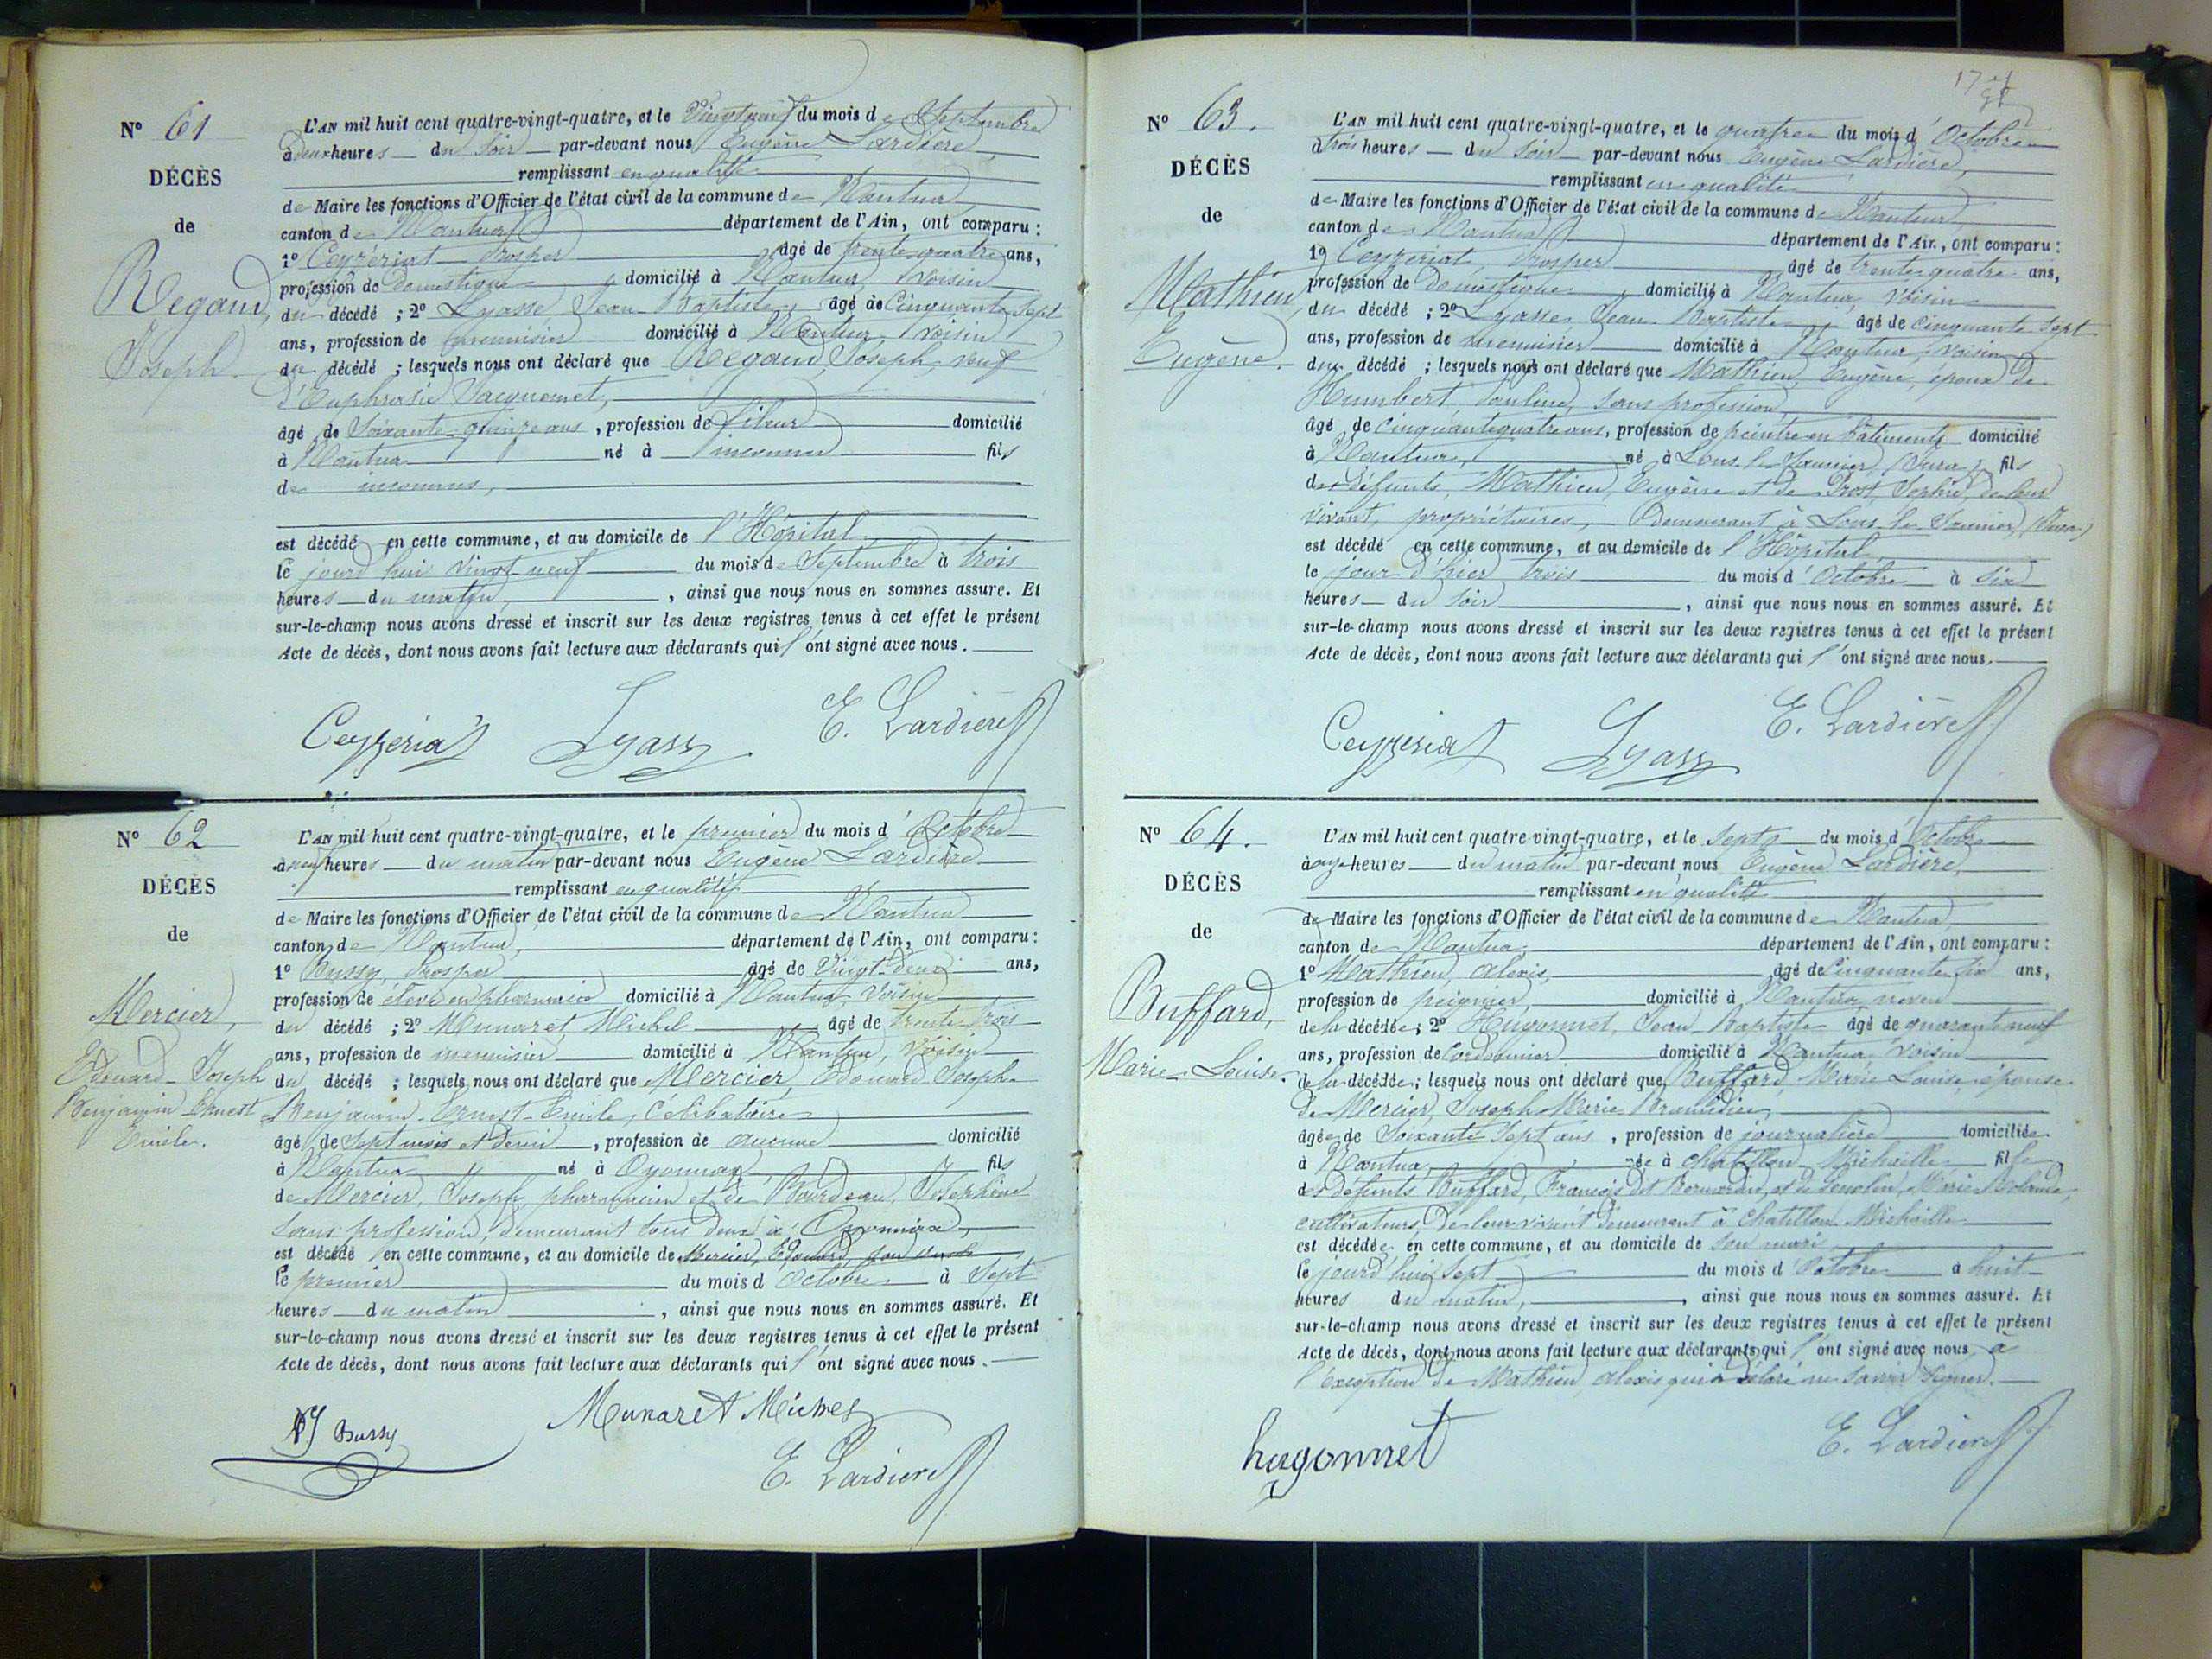 N° 61
DÉCÈS
de
Regaud,
Joseph.
L'AN mil huit cent quatre-vingt-quatre, et le vingt neuf du mois de Septembre
à deux heures du soir par-devant nous Eugène Lardière,
remplissant en qualité
de Maire les fonctions d'Officier de l'état civil de la commune de Nantua,
canton de Nantua département de l'Ain, ont comparu :
1° Ceyzériat Prosper âgé de trente quatre ans,
profession de domestique domicilié à Nantua, voisin
du décédé ; 2° Lyasse, Jean Baptiste, âgé de Cinquante sept
ans, profession de menuisier domicilié à Nantua, voisin
du décédé ; lesquels nous ont déclaré que Regaud, Joseph, veuf
d'Euphrasie Jacquemet,
âgé de Soixante-quinze ans, profession de fileur domicilié
à Nantua né à inconnu fils
de inconnus,
est décédé en cette commune, et au domicile de l'Hôpital
le jourd'hui vingt neuf du mois de Septembre à trois
heures du matin, ainsi que nous nous en sommes assuré. Et
sur-le-champ nous avons dressé et inscrit sur les deux registres tenus à cet effet le présent
Acte de décès, dont nous avons fait lecture aux déclarants qui l'ont signé avec nous.
Ceyzériat Lyass E. Lardière
N° 62
DÉCÈS
de
Mercier,
Edouard-Joseph
Benjamin Ernest
Emile.
L'AN mil huit cent quatre-vingt-quatre, et le premier du mois d'Octobre
à neuf heures du matin par-devant nous Eugène Lardière
remplissant en qualité
de Maire les fonctions d'Officier de l'état civil de la commune de Nantua
canton de Nantua, département de l'Ain, ont comparu :
1° Bussy, Prosper âgé de vingt-deux ans,
profession de élève en pharmacie domicilié à Nantua, voisin
du décédé ; 2° Munaret, Michel âgé de trente trois
ans, profession de menuisier domicilié à Nantua, voisin
du décédé ; lesquels nous ont déclaré que Mercier, Edouard Joseph
Benjamin-Ernest-Emile, célibataire
âgé de sept mois et demi, profession de aucune domicilié
à Nantua né à Oyonnax fils
de Mercier, Joseph, pharmacien et de Bourdeau, Joséphine
sans profession, demeurant tous deux à Oyonnax,
est décédé en cette commune, et au domicile de Mercier, Edouard, son oncle
le premier du mois d'Octobre à Sept
heures du matin, ainsi que nous nous en sommes assuré. Et
sur-le-champ nous avons dressé et inscrit sur les deux registres tenus à cet effet le présent
Acte de décès, dont nous avons fait lecture aux déclarants qui l'ont signé avec nous.
Bussy Munaret Michel
E. Lardière
N° 63.
DÉCÈS
de
Mathieu,
Eugène.
L'AN mil huit cent quatre-vingt-quatre, et le quatre du mois d'Octobre
à trois heures du soir par-devant nous Eugène Lardière,
remplissant en qualité
de Maire les fonctions d'Officier de l'état civil de la commune de Nantua,
canton de Nantua département de l'Ain, ont comparu :
1° Ceyzériat, Prosper âgé de trente quatre ans,
profession de Domestique domicilié à Nantua, voisin
du décédé ; 2° Lyasse, Jean Baptiste, âgé de cinquante sept
ans, profession de menuisier domicilié à Nantua, voisin
du décédé ; lesquels nous ont déclaré que Mathieu, Eugène, époux de
Humbert, Pauline, sans profession,
âgé de Cinquante quatre ans, profession de peintre en bâtiments domicilié
à Nantua, né à Lons le Saunier (Jura) fils
des défunts, Mathieu, Eugène et de Prost, Sophie, de leur
vivant, propriétaires, Demeurant à Lons-le-Saunier, (Jura)
est décédé en cette commune, et au domicile de l'Hôpital
le jour d'hier trois du mois d'Octobre à six
heures du soir, ainsi que nous nous en sommes assuré. Et
sur-le-champ nous avons dressé et inscrit sur les deux registres tenus à cet effet le présent
Acte de décès, dont nous avons fait lecture aux déclarants qui l'ont signé avec nous.
Ceyzériat Lyass E. Lardière
N° 64.
DÉCÈS
de
Buffard,
Marie-Louise.
L'AN mil huit cent quatre-vingt-quatre, et le sept du mois d'Octobre
à onze heures du matin par-devant nous Eugène Lardière,
remplissant en qualité
de Maire les fonctions d'Officier de l'état civil de la commune de Nantua,
canton de Nantua, département de l'Ain, ont comparu :
1° Mathieu, Alexis, âgé de Cinquante six ans,
profession de peignier, domicilié à Nantua, neveu
de la décédée ; 2° Hugonnet, Jean-Baptiste âgé de quarante neuf
ans, profession de Cordonnier domicilié à Nantua voisin
de la décédée ; lesquels nous ont déclaré que Buffard, Marie Louise, épouse
de Mercier, Joseph Marie
âgée de Soixante Sept ans, profession de journalière domiciliée
à Nantua, née à Chatillon-Michaille fille
des défunts Buffard, François dit Bernardin, et de Marie
cultivateurs, de leur vivant demeurant à Chatillon Michaille
est décédée en cette commune, et au domicile de son mari
le jourd'hui Sept du mois d'Octobre à huit
heures du matin, ainsi que nous nous en sommes assuré. Et
sur-le-champ nous avons dressé et inscrit sur les deux registres tenus à cet effet le présent
Acte de décès, dont nous avons fait lecture aux déclarants qui l'ont signé avec nous, à
l'exception de Mathieu Alexis qui a déclaré ne savoir signer.
hugonnet E. Lardière